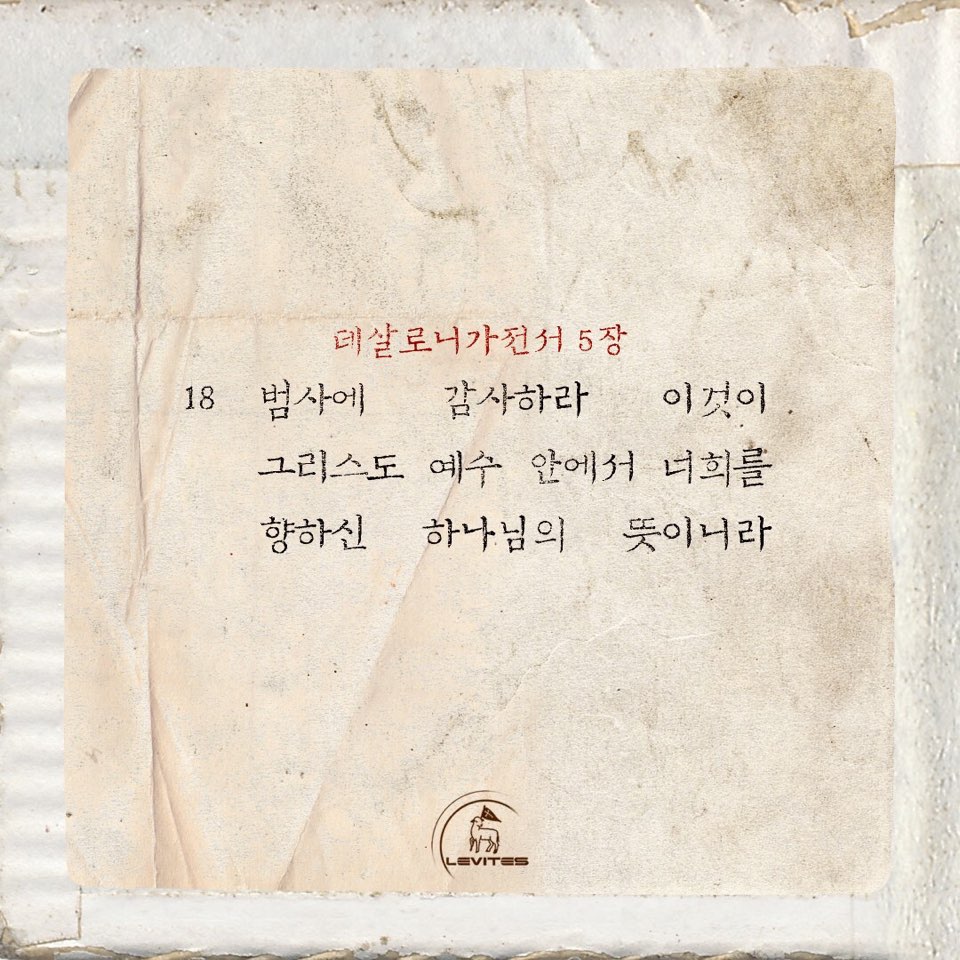 데살로니가전서 5장
18 범사에 감사하라 이것이
그리스도 예수 안에서 너희를
향하신 하나님의 뜻이니라
LEVITES